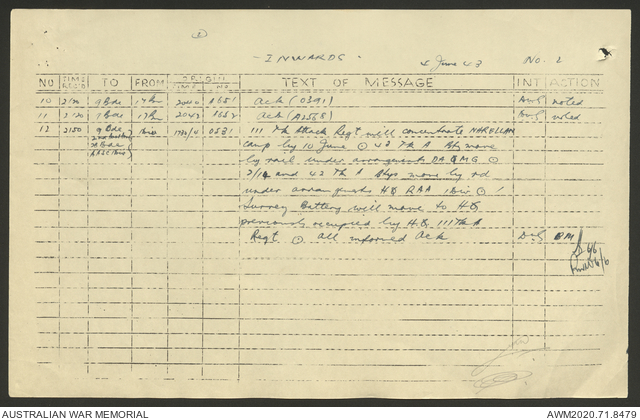 - INWARDS -
4 June 43 No. 2
NO TIME REC'D TO FROM ORIGIN TIME NO. TEXT OF MESSAGE INT ACTION
10 2120 9 Bde 2040 A551 Ack (0391) noted
11 2120 9 Bde 2042 A552 Ack (A2568) noted
12 2150 9 Bde 0581 111 Tk Attack Regt will concentrate NARELLAN
camp by 10 June ⊙ 43 Tk A Bty move
by rail under arrangements DA QMG ⊙
2/11 and 42 Tk A Btys move by rd
under arrangements HQ RAA 1 Div ⊙ 1
Survey Battery will move to HQ
previously occupied by HQ 111 Tk A
Regt ⊙ All informed Ack BM
AUSTRALIAN WAR MEMORIAL AWM2020.71.8479